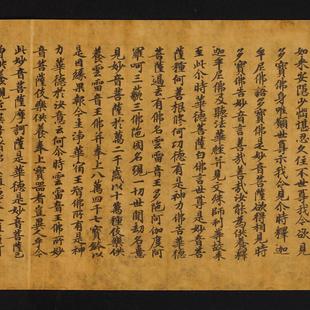 如來安隱少惱堪忍久住不世尊我今欲見
多寶佛身唯願世尊示我令見尒時釋迦
牟尼佛語多寶佛是妙音菩薩欲得相見時
多寶佛告妙音言善哉善哉汝能為供養釋
迦牟尼佛及聽法華經并見文殊師利等故來
至此尒時華德菩薩白佛言世尊是妙音菩
薩種何善根修何功德有是神力佛告華德
菩薩過去有佛名雲雷音王多陀阿伽度阿
羅呵三藐三佛陀國名現一切世間劫名憙
見妙音菩薩於萬二千歲以十萬種伎樂供
養雲雷音王佛并奉上八萬四千七寶鉢以
是因緣果報今生淨華宿王智佛國有是神
力華德於汝意云何尒時雲雷音王佛所妙
音菩薩伎樂供養奉上寶器者豈異人乎今
此妙音菩薩摩訶薩是華德是妙音菩薩已